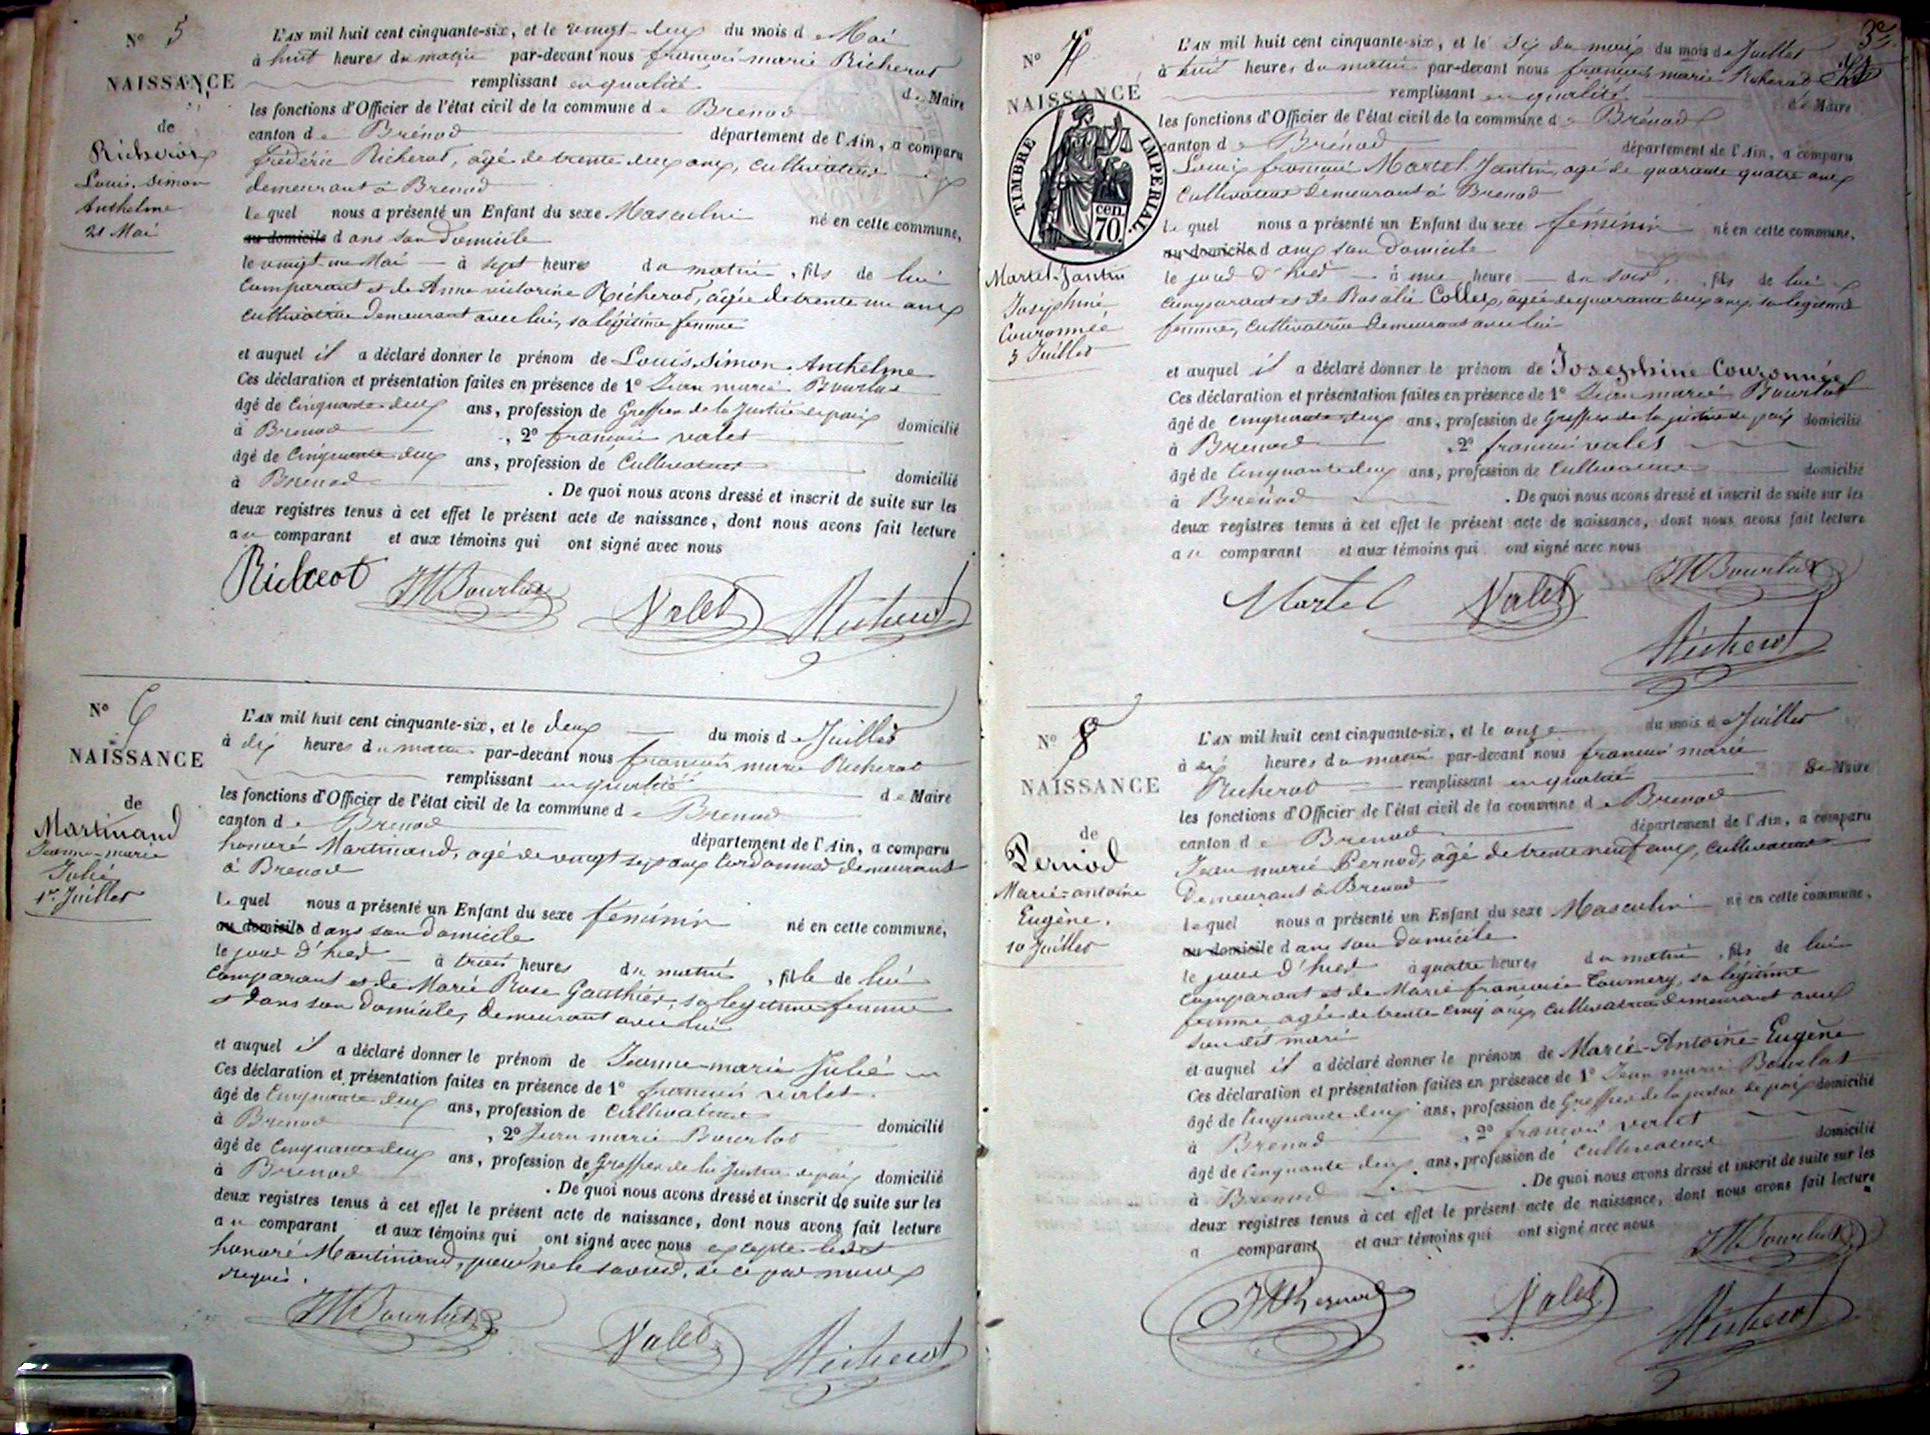 N° 5
NAISSANCE
de
Richerot
Louis, Simon
Anthelme
21 Mai
L'AN mil huit cent cinquante-six, et le vingt-deux du mois de Mai
à huit heures du matin par-devant nous françois marie Richerot
remplissant en qualité de Maire
les fonctions d'Officier de l'état civil de la commune de Brenod
canton de Brénod département de l'Ain, a comparu
frédéric Richerot, âgé de trente deux ans, cultivateur
demeurant à Brenod
lequel nous a présenté un Enfant du sexe Masculin né en cette commune,
au domicile dans son domicile
le vingt un Mai à sept heures du matin, fils de lui
comparant et de Anne victorine Richerod, âgée de trente un ans
cultivatrice demeurant avec lui, sa légitime femme
et auquel il a déclaré donner le prénom de Louis, Simon, Anthelme
Ces déclaration et présentation faites en présence de 1° Jean marie Bourlot
âgé de cinquante deux ans, profession de Greffier de la Justice de paix domicilié
à Brenod, 2° françois valet
âgé de cinquante deux ans, profession de Cultivateur domicilié
à Brenod. De quoi nous avons dressé et inscrit de suite sur les
deux registres tenus à cet effet le présent acte de naissance, dont nous avons fait lecture
au comparant et aux témoins qui ont signé avec nous
Richerot JMBourlot Valet Richerot
N° 6
NAISSANCE
de
Martinand
Jeanne-marie
Julie
1er Juillet
L'AN mil huit cent cinquante-six, et le deux du mois de Juillet
à dix heures du matin par-devant nous françois marie Richerot
remplissant en qualité de Maire
les fonctions d'Officier de l'état civil de la commune de Brenod
canton de Brenod département de l'Ain, a comparu
honoré Martinand, agé de vingt six ans Cordonnier demeurant
à Brenod
lequel nous a présenté un Enfant du sexe féminin né en cette commune,
au domicile dans son domicile
le jour d'hier à trois heures du matin, fille de lui
comparant et de Marie Rose Gauthier, sa legitime femme
dans son domicile, demeurant avec lui
et auquel il a déclaré donner le prénom de Jeanne-marie Julie
Ces déclaration et présentation faites en présence de 1° françois valet
âgé de Cinquante deux ans, profession de cultivateur domicilié
à Brenod, 2° Jean marie Bourlot
âgé de cinquante deux ans, profession de Greffier de la Justice de paix domicilié
à Brenod. De quoi nous avons dressé et inscrit de suite sur les
deux registres tenus à cet effet le présent acte de naissance, dont nous avons fait lecture
au comparant et aux témoins qui ont signé avec nous excepté ledit
honoré Martinand, pour ne le savoir, de ce par nous
requis.
JMBourlot Valet Richerot
3e
N° 7
NAISSANCE
TIMBRE IMPERIAL.
cen.
70.
Martel-Jantin
Josephine
Couronnée
5 Juillet
L'AN mil huit cent cinquante-six, et le six du mois du mois de Juillet
à huit heures du matin par-devant nous françois marie Richerod
remplissant en qualité de Maire
les fonctions d'Officier de l'état civil de la commune de Brénod
canton de Brénod département de l'Ain, a comparu
Louis françois Martel-Jantin, agé de quarante quatre ans
Cultivateur demeurant à Brenod
lequel nous a présenté un Enfant du sexe féminin né en cette commune,
au domicile dans son domicile
le jour d'hier à une heure du soir, fils de lui
comparant et de Rosalie Collet, âgée de quarante deux ans, sa légitime
femme, cultivatrice demeurant avec lui
et auquel il a déclaré donner le prénom de Josephine Couronnée
Ces déclaration et présentation faites en présence de 1° Jean marie Bourlot
âgé de cinquante deux ans, profession de Greffier de la justice de paix domicilié
à Brenod, 2° françois valet
âgé de Cinquante deux ans, profession de Cultivateur domicilié
à Brénod. De quoi nous avons dressé et inscrit de suite sur les
deux registres tenus à cet effet le présent acte de naissance, dont nous avons fait lecture
au comparant et aux témoins qui ont signé avec nous
Martel Valet JMBourlot
Richerot
N° 8
NAISSANCE
de
Perniod
Marie-antoine
Eugène.
10 Juillet
L'AN mil huit cent cinquante-six, et le onze du mois de Juillet
à six heures du matin par-devant nous françois marie
Richerot remplissant en qualité de Maire
les fonctions d'Officier de l'état civil de la commune de Brenod
canton de Brenod département de l'Ain, a comparu
Jean marie Pernod, âgé de trente neuf ans, cultivateur
Demeurant à Brenod
lequel nous a présenté un Enfant du sexe Masculin né en cette commune,
au domicile dans son domicile
le jour d'hier à quatre heures du matin, fils de lui
comparant et de Marie françoise Tournery, sa légitime
femme agée de trente cinq ans, cultivatrice demeurant avec
son dit mari
et auquel il a déclaré donner le prénom de Marie-Antoine-Eugène
Ces déclaration et présentation faites en présence de 1° Jean marie Bourlot
âgé de Cinquante deux ans, profession de Greffier de la justice de paix domicilié
à Brenod, 2° françois valet
âgé de Cinquante deux ans, profession de cultivateur domicilié
à Brenod. De quoi nous avons dressé et inscrit de suite sur les
deux registres tenus à cet effet le présent acte de naissance, dont nous avons fait lecture
a comparant et aux témoins qui ont signé avec nous
JMBourlot
Valet Richerot